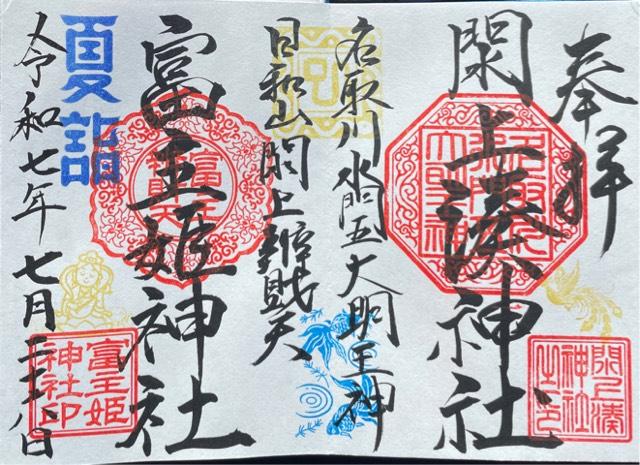 奉拝
閖上湊神社
名取川水門五大明王神
日和山閖上辯財天
富主姫神社
夏詣
令和七年七月
閖上湊
神社
之印
富主姫
神社印